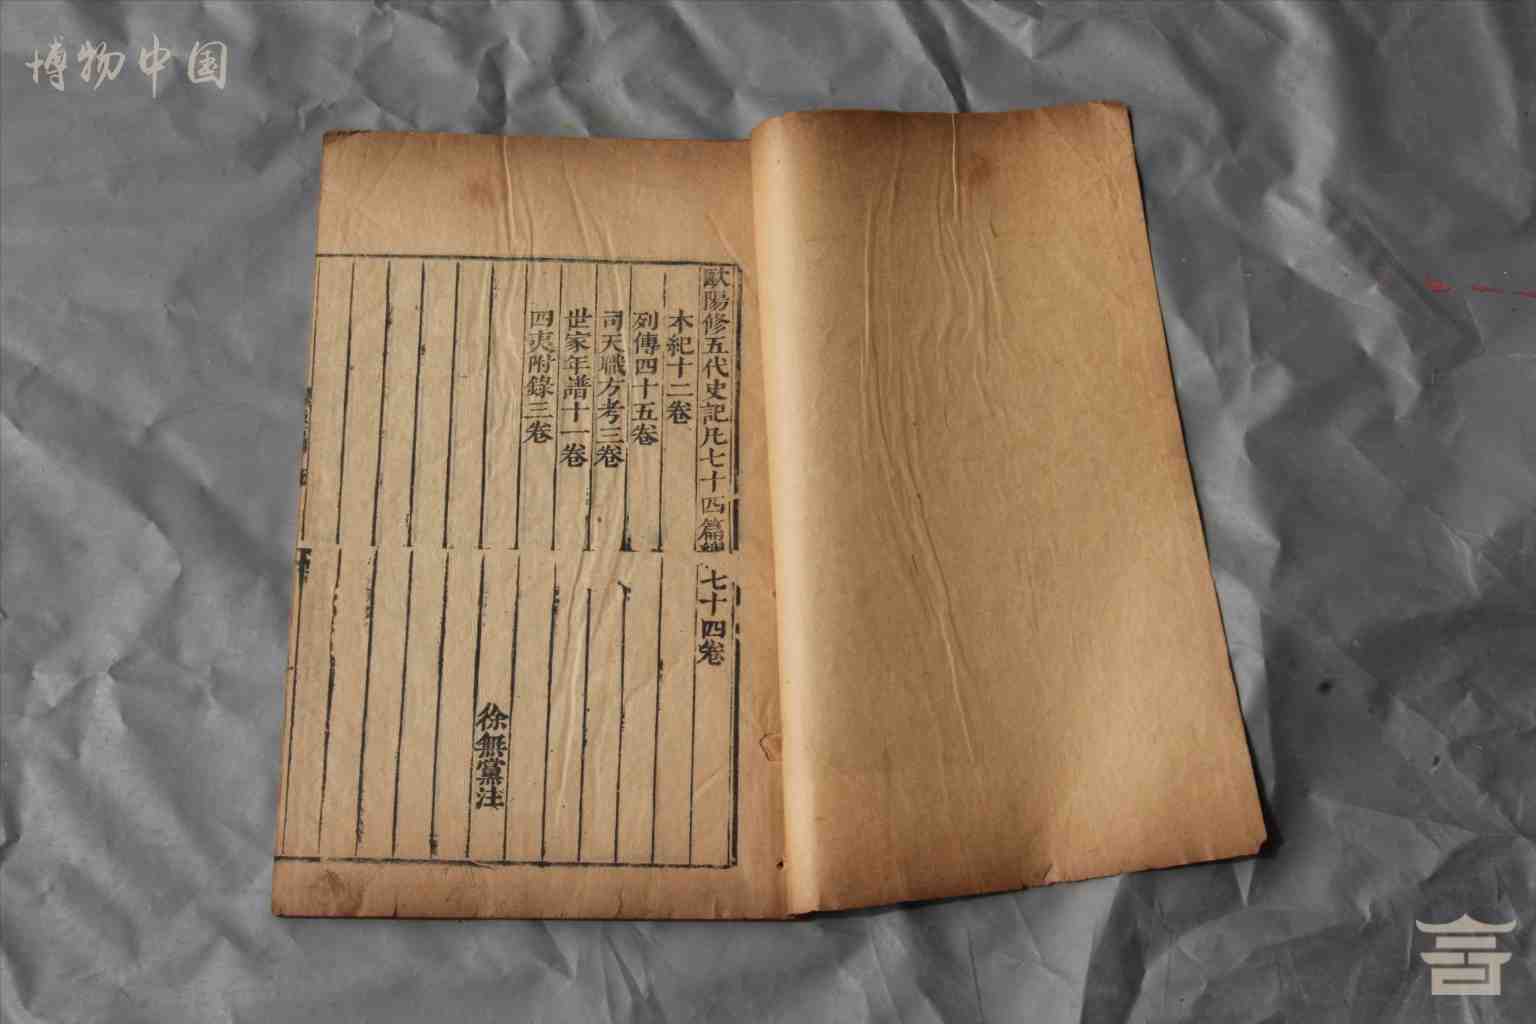 博物中国
歐陽修五代史記凡七十四篇總七十四卷
本紀十二卷
列傳四十五卷
司天職方考三卷
世家年譜十一卷
四夷附錄三卷
徐無黨注